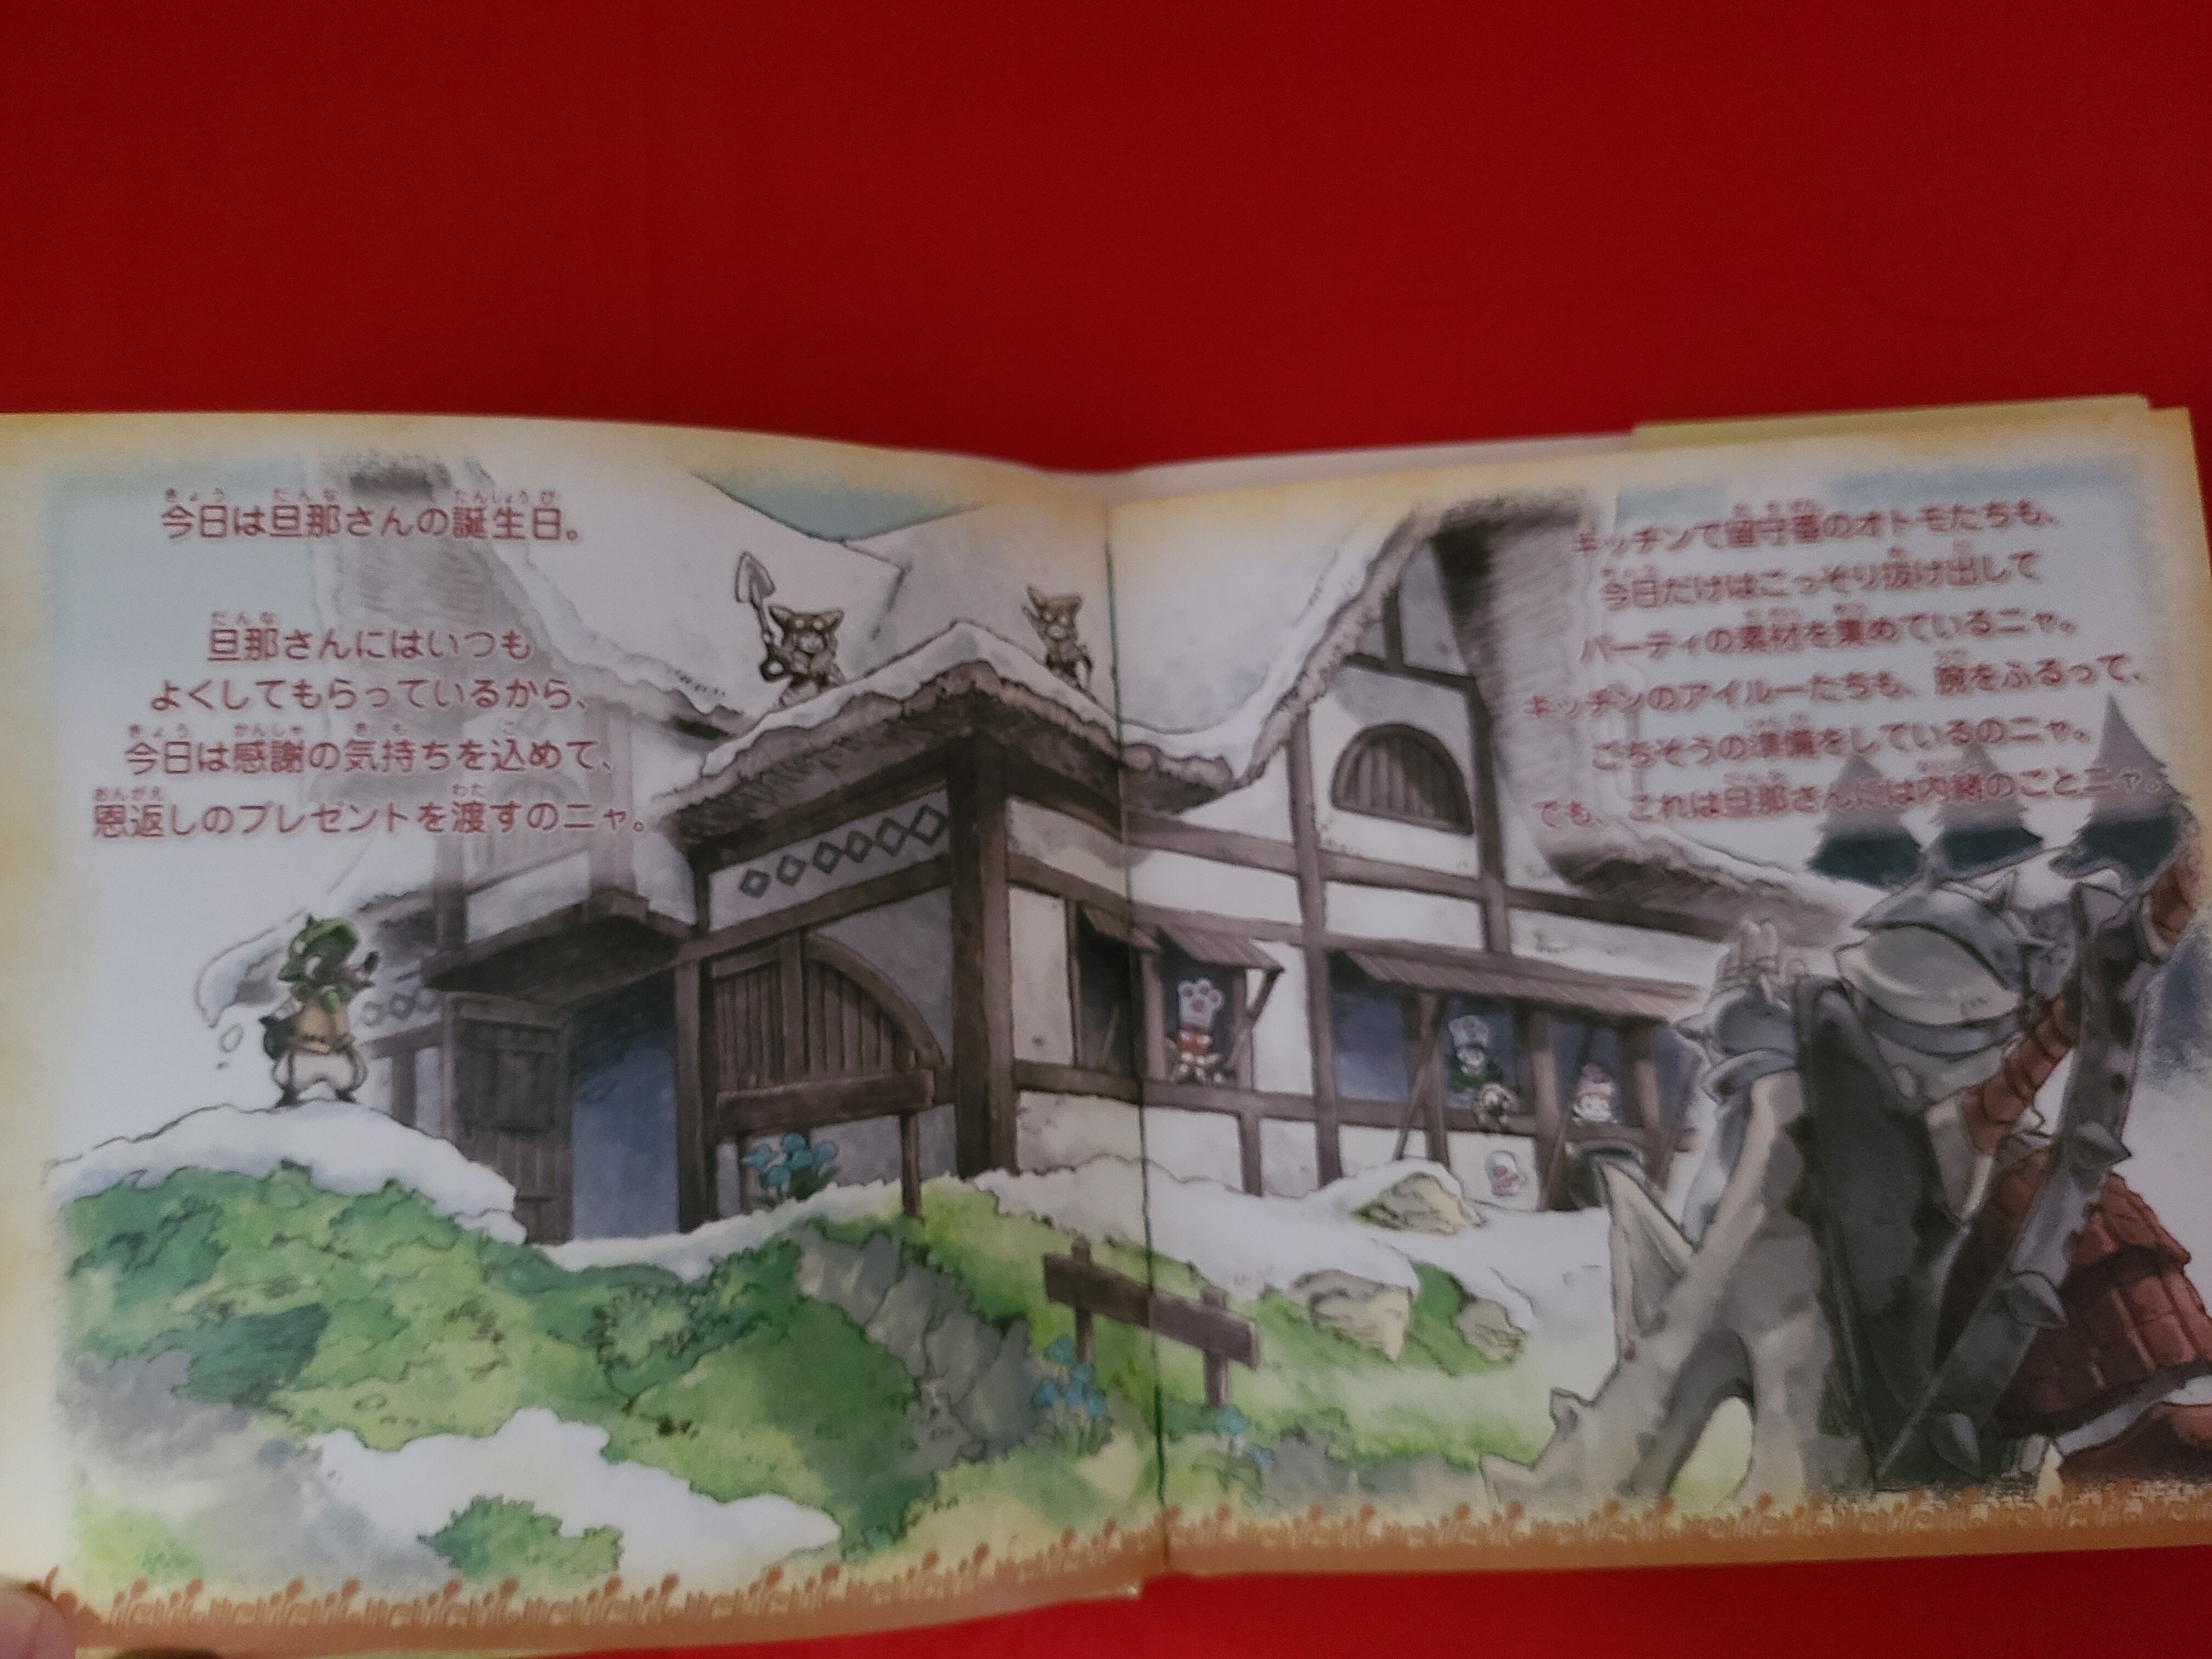 今日は旦那さんの誕生日。
旦那さんにはいつも
よくしてもらっているから、
今日は感謝の気持ちを込めて、
恩返しのプレゼントを渡すのニャ。
キッチンで留守番のオトモたちも、
今日だけはこっそり抜け出して
パーティの素材を集めているニャ。
キッチンのアイルーたちも、腕をふるって、
ごちそうの準備をしているのニャ。
でも、これは旦那さんには内緒のことニャ。